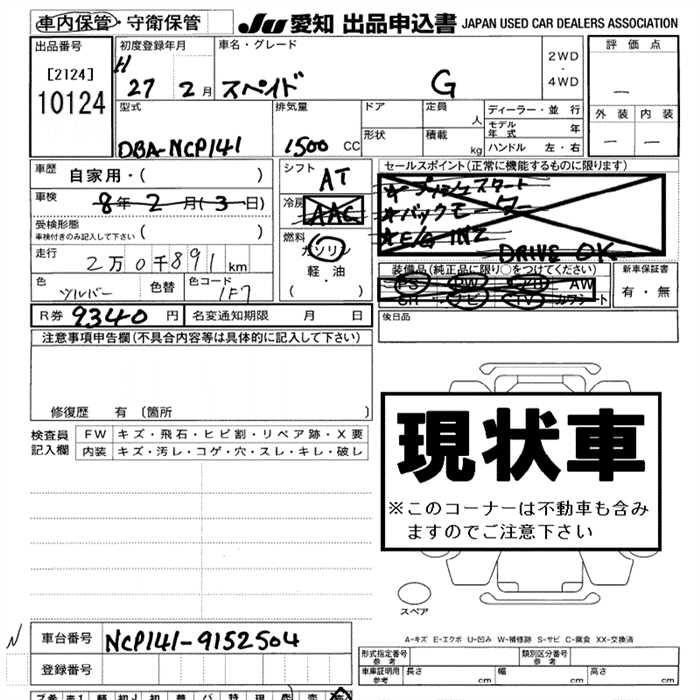 車内保管・守衛保管 JU 愛知 出品申込書 JAPAN USED CAR DEALERS ASSOCIATION
出品番号 [2124] 10124
初度登録年月 H 27 2 月
車名・グレード スペイド G
2WD・4WD
評価点 —
外装 — 内装 —
型式 DBA-NCP141
排気量 1500 CC
ドア
形状
定員 人
積載 kg
ディーラー・並 行
モデル年式 年
ハンドル 左・右
車歴 自家用・( )
車検 8年 2 月( 3 日)
受検形態 ( )
車検付きのみ記入して下さい
走行 2万 0千891 km
色 シルバー 色替 色コード 1F7
シフト AT
冷房 AAC
燃料 ガソリン
軽・油
( ・ )
セールスポイント(正常に機能するものに限ります)
*プッシュスタート
*バックモニター
*E/G INZ
DRIVE OK
装備品(純正品に限り○をつけてください)
PS PW AW
SR ナビ TV カワシート
新車保証書
有・無
R券 9340 円 名変通知期限 月 日
後日品
注意事項申告欄(不具合内容等は具体的に記入して下さい)
修復歴 有 〔箇所 〕
検査員記入欄
FW キズ・飛石・ヒビ割・リペア跡・X要
内装 キズ・汚レ・コゲ・穴・スレ・キレ・破レ
現状車
※このコーナーは不動車も含み
ますのでご注意下さい
スペア
N
車台番号 NCP141-9152504
登録番号
A-キズ E-エクボ U-凹み W-補修跡 S-サビ C-腐食 XX-交換済
形式指定番号 参考 類別区分番号 参考
車庫証明用 参考 長さ cm 幅 cm 高さ cm